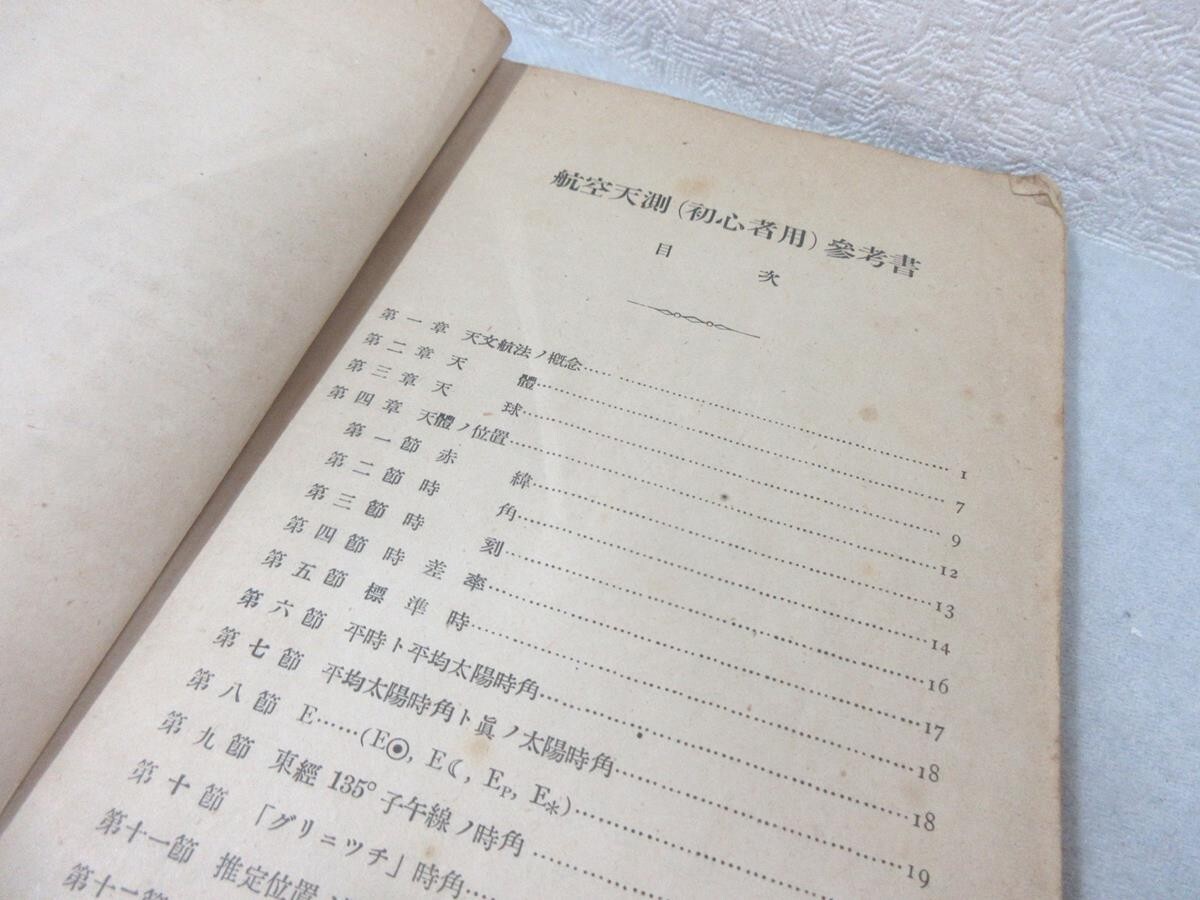 航空天測(初心者用)參考書
目次
第一章 天文航法ノ概念…………1
第二章 天體…………7
第三章 天球…………9
第四章 天體ノ位置…………12
第一節 赤緯…………13
第二節 時角…………14
第三節 時刻…………16
第四節 時差率…………17
第五節 標準時…………18
第六節 平時ト平均太陽時角…………18
第七節 平均太陽時角ト眞ノ太陽時角…………19
第八節 E……(E☉, E☾, EP, E*)…………
第九節 東經135°子午線ノ時角…………
第十節 「グリニツチ」時角…………
第十一節 推定位置